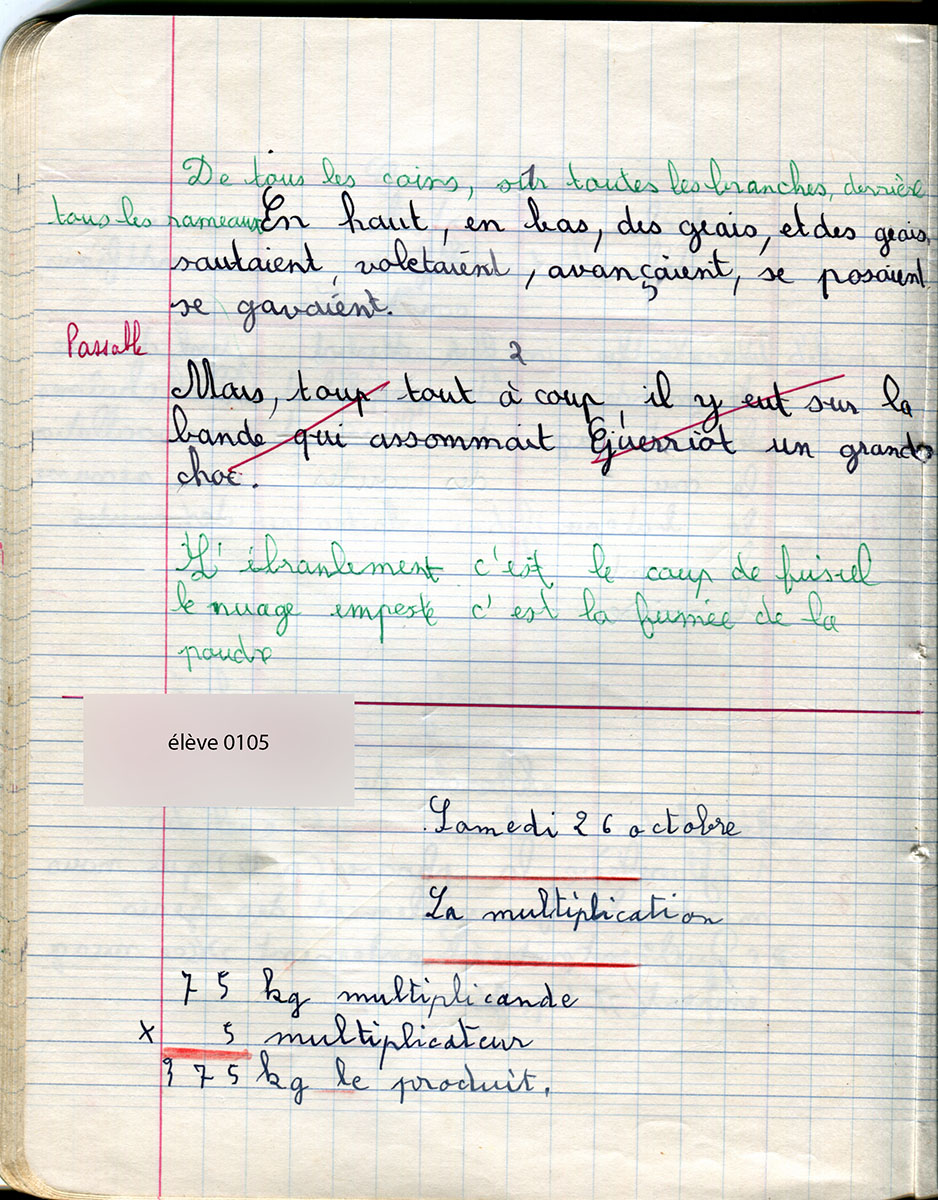 De tous les coins, sur toutes les branches, derrière
tous les rameaux En haut, en bas, des geais, et des geais,
sautaient, voletaient, avançaient, se posaient
se gavaient.
Passable
2
Mais, toup tout à coup, il y eut sur la
bande qui assommait Guerriot un grand
choc.
L'ébranlement c'est le coup de fusiel
le nuage empesté c'est la fumée de la
poudre
élève 0105
Samedi 26 octobre
La multiplication
75 kg multiplicande
x 5 multiplicateur
375 kg le produit.